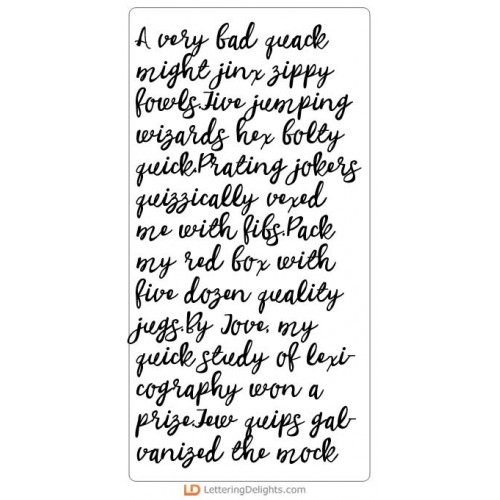 A very bad quack
might jinx zippy
fowls.Five jumping
wizards hex bolty
quick.Prating jokers
quizzically vexed
me with fibs.Pack
my red box with
five dozen quality
jugs.By Jove, my
quick study of lexi-
cography won a
prize.Few quips gal-
vanized the mock
LD LetteringDelights.com